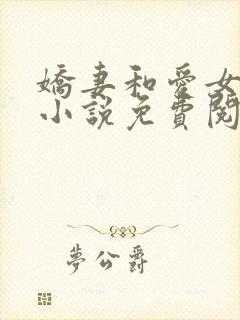 嬌妻和愛女
小說免費閱
夢公爵